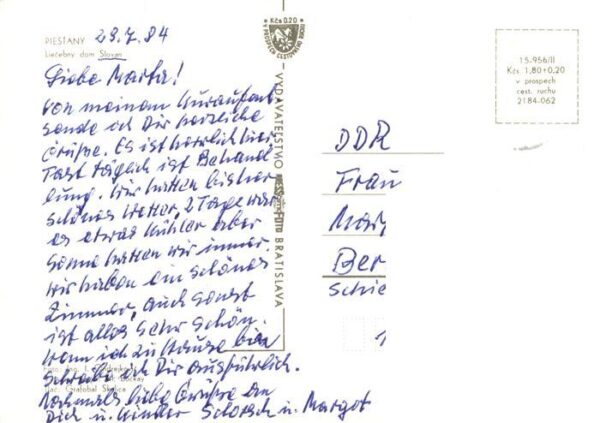 PIEŠŤANY 23.7.84
Liečebný dom Slovan
Liebe Marta!
Von meinem Kuraufent
sende ich Dir herzliche
Grüße. Es ist herrlich hier
Fast täglich ist Behand
lung. Wir hatten bisher
schönes Wetter, 2 Tage war
es etwas kühler aber
Sonne hatten wir immer.
Wir haben ein schönes
Zimmer, auch sonst
ist alles sehr schön.
Wenn ich zu Hause bin
schreibe ich Dir ausführlich.
Nochmals liebe Grüße an
Dich u. Kinder Schorsch u. Margot
Kčs 0.20
V PROSPECH CESTOVNÉHO RUCHU
VYDAVATEĽSTMO
BRATISLAVA
15-956/II
Kčs 1,80+0,20
v prospech
cest. ruchu
2184-062
DDR
Frau
Mar
Ber
Schie
1